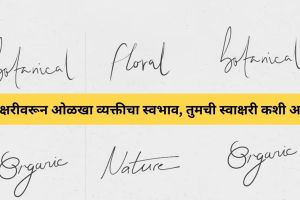 Botanical Floral Botanical
क्षरीवरून ओळखा व्यक्तीचा स्वभाव, तुमची स्वाक्षरी कशी अ
Organic Nature Organic